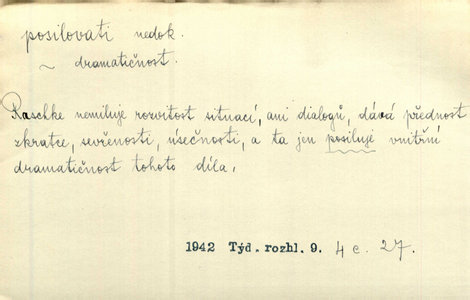 posilovati nedok.
~ dramatičnost.
Raschke nemiluje rozvitost situací, ani dialogů, dává přednost
zkratce, sevřenosti, úsečnosti, a ta jen posiluje vnitřní
dramatičnost tohoto díla.
1942 Týd. rozhl. 9. 4 c. 27.